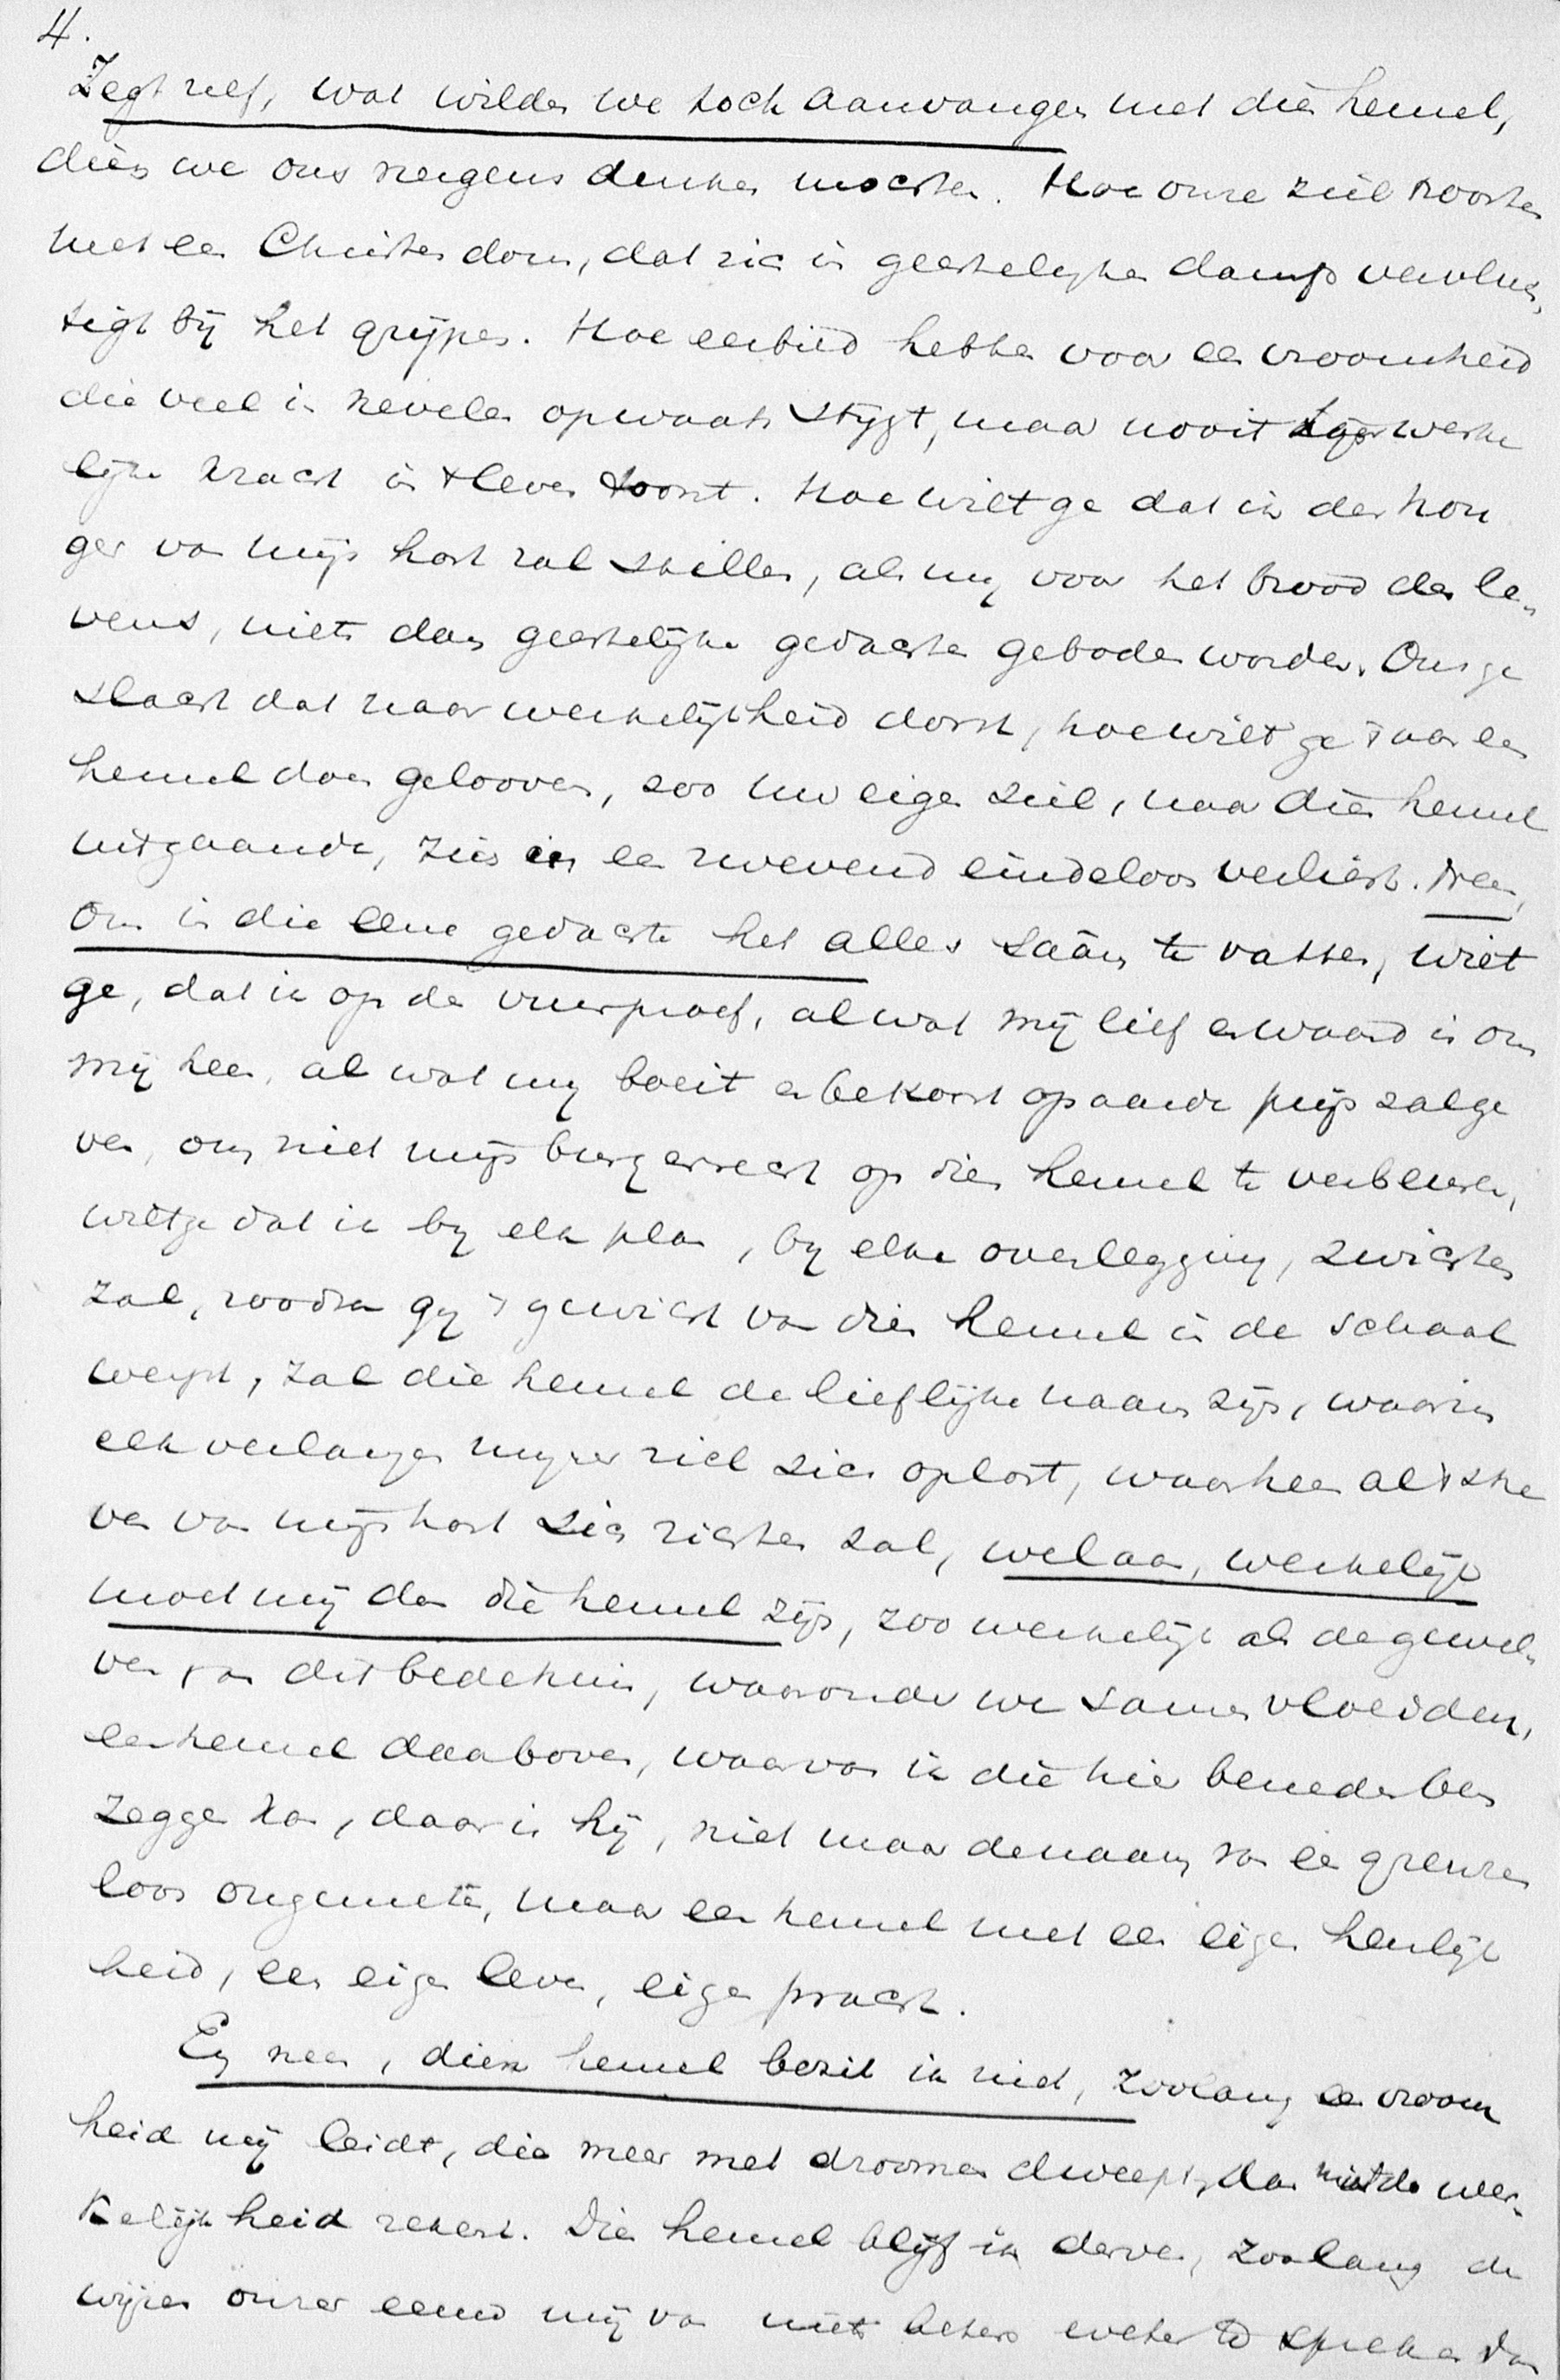 4.
Zegt zelf, wat wilden we toch aanvangen met dien hemel,
dien we ons nergens denken mochten. Hoe onze ziel troosten
met een Christendom, dat zich in geestelijken damp vervluch-
tigt bij het grijpen. Hoe eerbied hebben voor een vroomheid
die veel in nevelen opwaarts stijgt, maar nooit haar werke
lijke kracht in 't leven toont. Hoe wilt ge dat ik den hon
ger van mijn hart zal stillen, als mij voor het brood des le-
vens, niets dan geestelijke gedachten geboden worden. Ons ge
slacht dat naar werkelijkheid dorst, hoe wilt ge 't aan een
hemel doen gelooven, zoo uw eigen ziel, naar dien hemel
uitgaande, zich in een zwevend eindeloos verliest. Neen,
om in die eene gedachte het alles saâm te vatten, wilt
ge, dat ik op de vuurproef, al wat mij lief en waard is om
mij heen, al wat mij boeit en bekoort op aarde prijs zal ge
ven, om niet mijn burgerrecht op dien hemel te verbeuren,
wilt ge dat ik bij elk plan, bij elke overlegging, zwichten
zal, zoodra gij 't gewicht van dien hemel in de schaal
werpt, zal die hemel de lieflijke naam zijn, waarin
elk verlangen mijner ziel zich oplost, waarheen al 't stre
ven van mijn hart zich richten zal, welaan, werkelijk
moet mij dan die hemel zijn, zoo werkelijk als de gewel-
ven van dit bedehuis, waaronder we samenvloeiden,
een hemel daarboven, waarvan ik die hier beneden ben
zeggen kan, daar is hij, niet maar de naam van een grenzen
loos ongemeten, maar een hemel met een eigen heerlijk
heid, een eigen leven, eigen pracht.
En neen, dien hemel bezit ik niet, zoolang een vroom
heid mij leidt, die meer met droomen dweept, dan met de wer-
kelijkheid rekent. Dien hemel blijf ik derven, zoolang de
wijzen onzer eeuw mij van niets beters weten te spreken dan